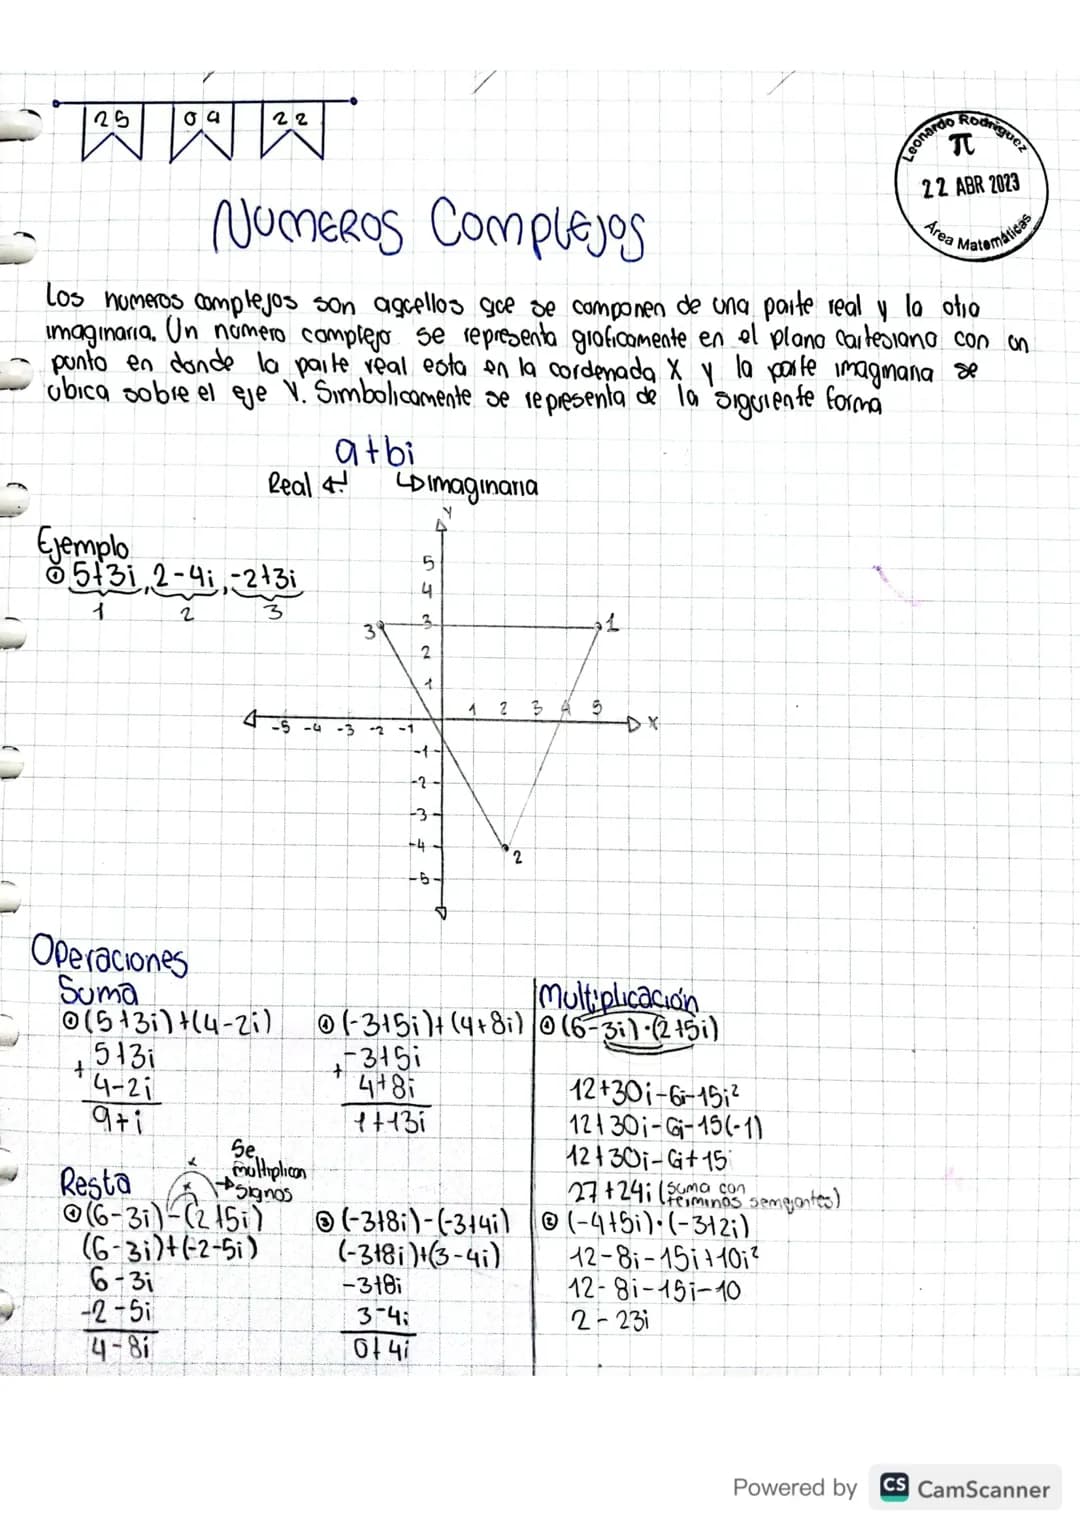 25 09 22
Leonardo Rodriguez
π
22 ABR 2023
Área Matemáticas
NUMEROS COMPLEJOS
Los numeros complejos son aquellos que se componen de una parte real y la otra
imaginaria. Un numero complejo se representa graficamente en el plano cartesiano con un
punto en donde la parte real esta en la cordenada X y la parte imaginaria se
ubica sobre el eje Y. Simbolicamente se representa de la siguiente forma
a+bi
Real ↵ ↳ imaginaria
Ejemplo
① 5+3i, 2-4i, -2+3i
1 2 3
Y
5
4
3
2
1
3 1
1 2 3 4 5
-5 -4 -3 -2 -1 X
-1
-2
-3
-4
2
-5
Operaciones
Suma
① (5+3i)+(4-2i)
+ 5+3i
4-2i
9+i
② (-3+5i)+(4+8i)
+ -3+5i
4+8i
1+13i
Resta
x x → Se multiplican signos
① (6-3i)-(2+5i)
(6-3i)+(-2-5i)
6-3i
-2-5i
4-8i
② (-3+8i)-(-3+4i)
(-3+8i)+(3-4i)
-3+8i
3-4i
0+4i
Multiplicación
① (6-3i)·(2+5i)
12+30i-6i-15i²
12+30i-6i-15(-1)
12+30i-6i+15
27+24i (suma con terminos semejantes)
② (-4+5i)·(-3+2i)
12-8i-15i+10i²
12-8i-15i-10
2-23i
Powered by CS CamScanner